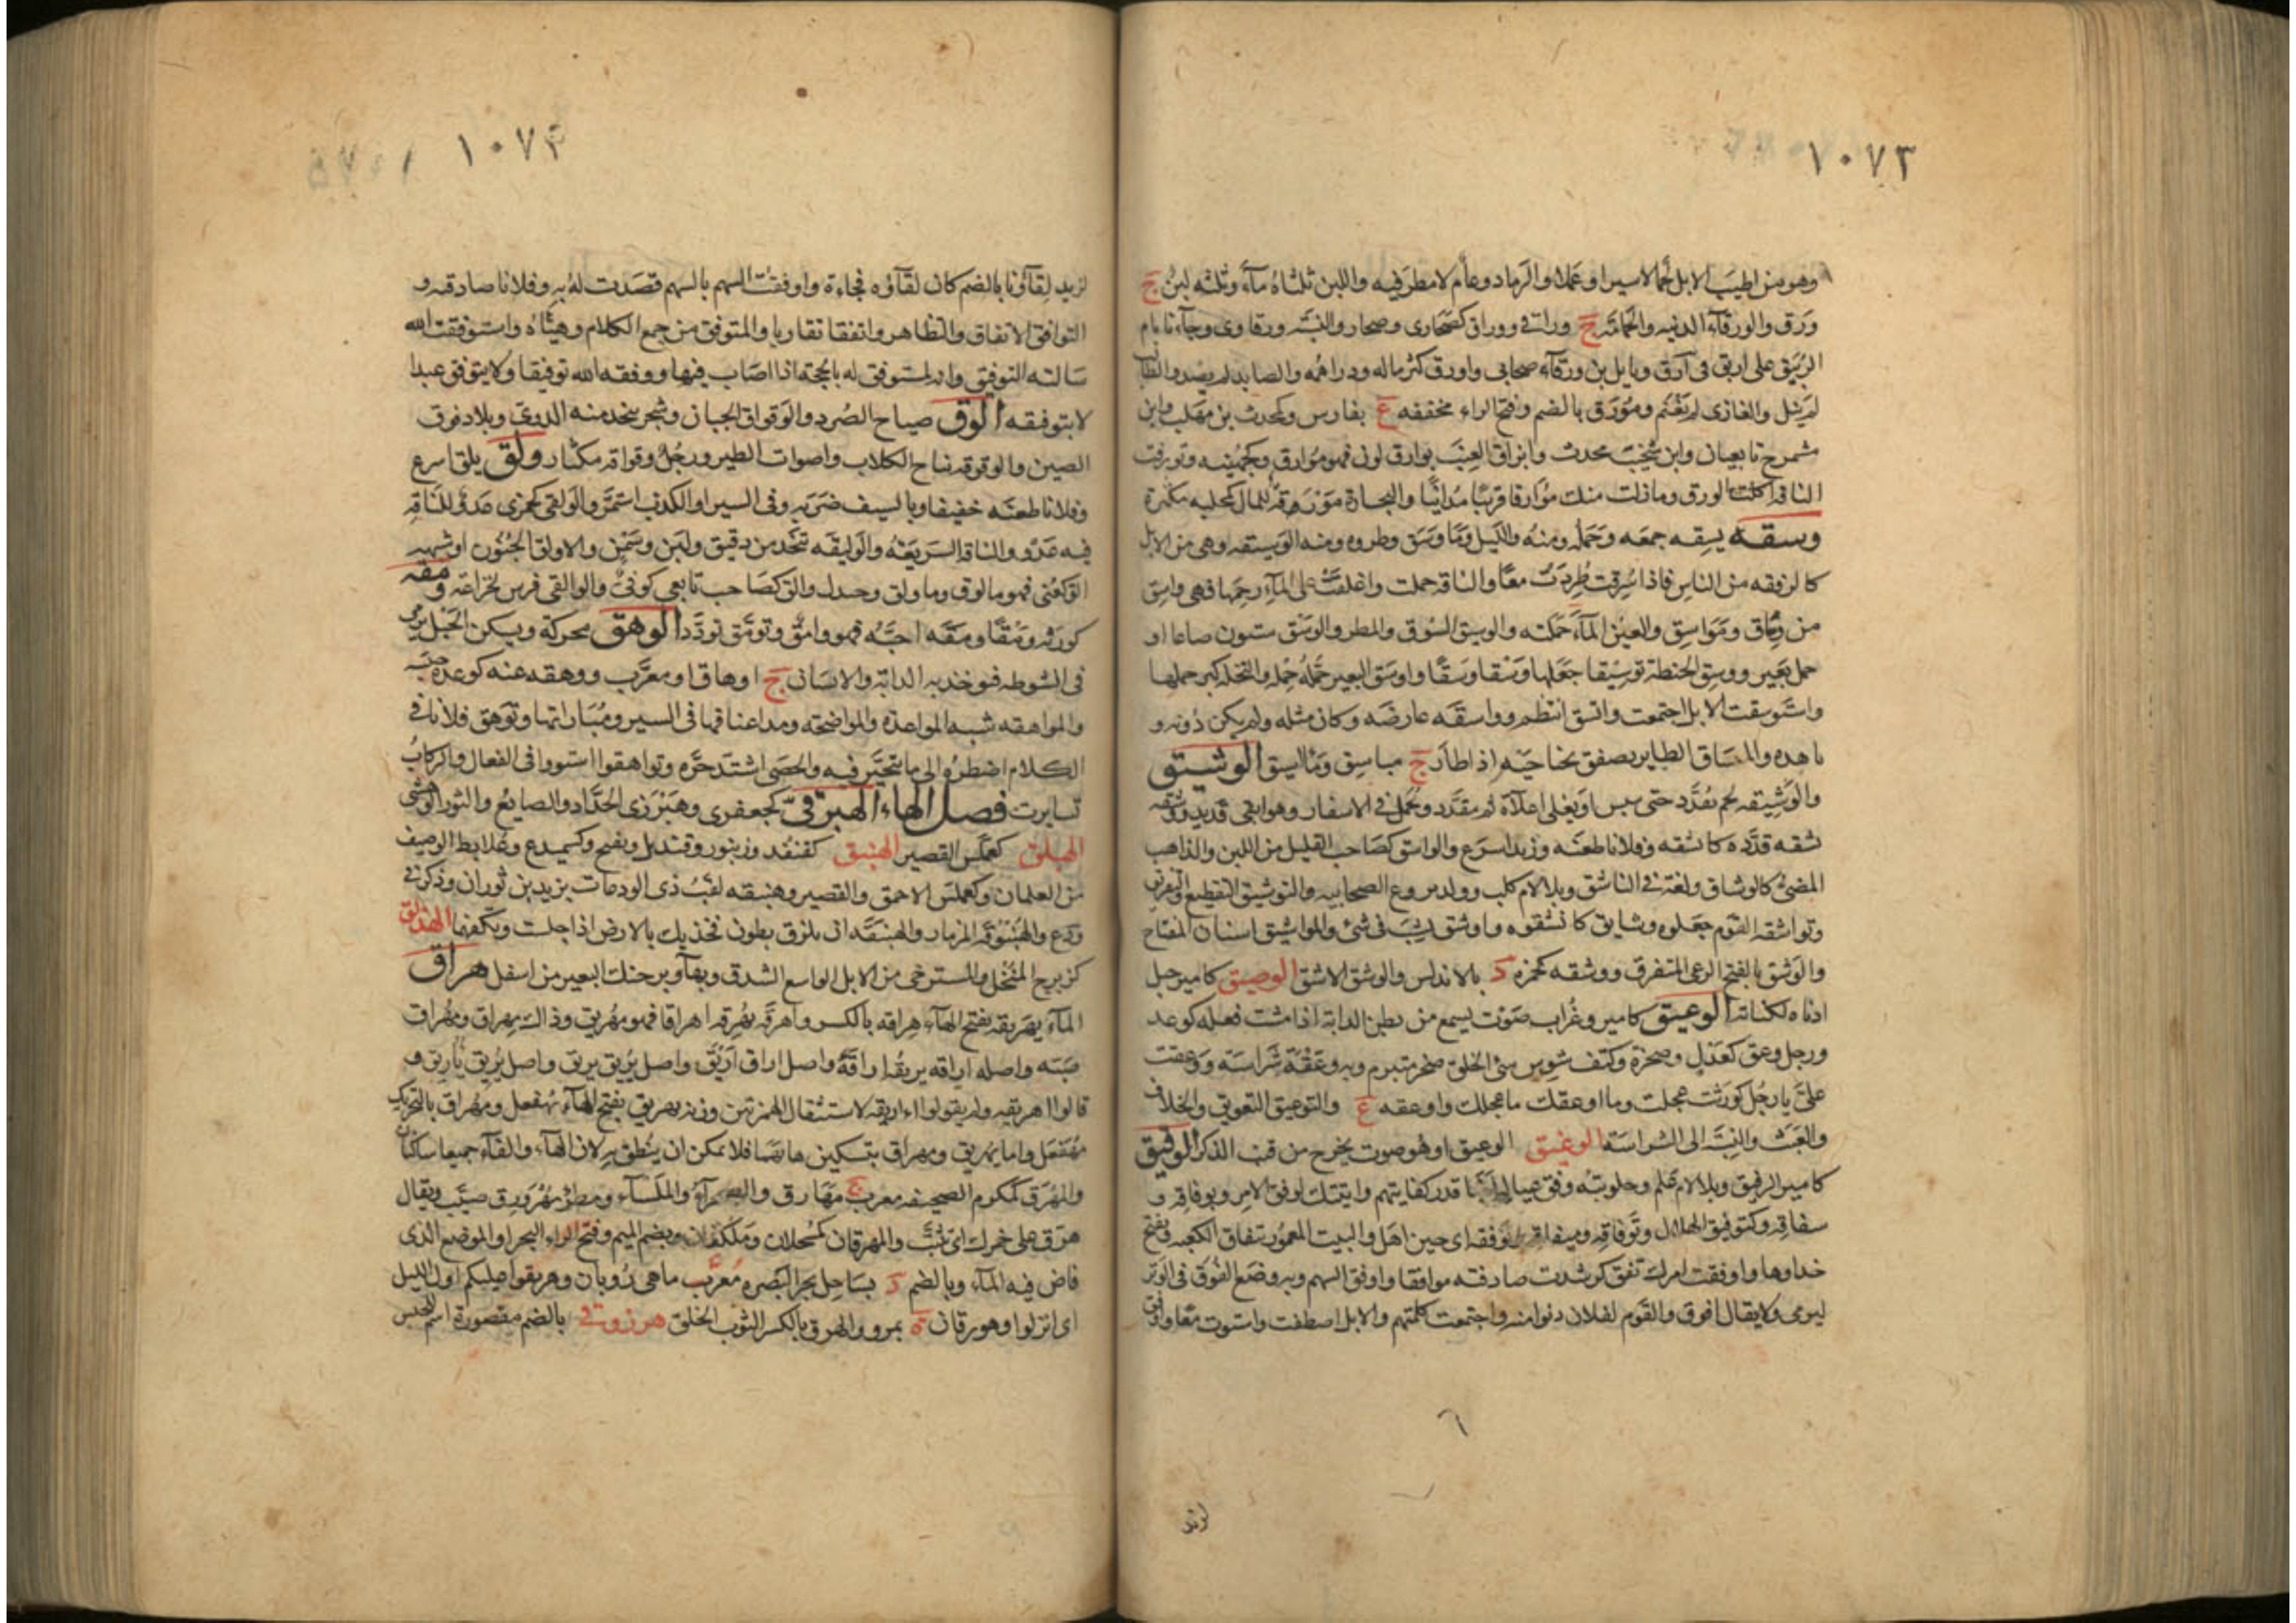 ١٠٧٣
وهو من اطيب الابل لحما لاسيرا وعملا والرماد وعام لا مطر فيه واللبن ثلثاه مآء وثلثه لبن ج
ورق والورقآء الذئبه والحمامة ج وراقى ووراق كصحارى وصحار والنسبه ورقاوى وجآءنا بام
الربيق على اريق فى آرق وبايل بن ورقآء صحابى واورق كثر ماله ودراهمه والصايد لم يصد والطالب
لم ينل والغازى لم يغنم ومورق بالضم وفتح الراء مخففه ع بفارس وكمحدث بن مهلب وابن
مشمرج تابعيان وابن سخيت محدث وايراق العنب يوارق لون فهو موارق وكجهينه وتورقت
الناقة اكلت الورق وما زلت منك موارقا قريبا مدانيا والتجارة مورقة للمال كمجلبه مكثرة
وسقه يسقه جمعه وحمله ومنه والليل وما وسق وطرده ومنه الوسيقه وهى من الابل
كالرفقه من الناس فاذا سرقت طردت معا والناقة حملت واغلقت على المآء رحمها فهى واسق
من وساق ومواسق والعين المآء حملته والوسيق السوق والمطر والوسق ستون صاعا او
حمل بعير ووسق الحنطة توسيقا جعلها وسقا وسقا واوسق البعير حمله حمله والنخلة كثر حملها
واستوسقت الابل اجتمعت واتسق انتظم وواسقه عارضه وكان مثله ولم يكن دونه و
ناهده والميساق الطاير يصفق بجناحيه اذا طار ج مياسيق ومآسيق الوشيق
والوشيقه لحم يقدد حتى ييبس او يغلى اغلآة ثم يقدد ويحمل فى الاسفار وهو ابقى قديد وشقه
يشقه قدده كاتشقه وفلانا طعنه وزيد اسرع والواشق كصاحب القليل من اللبن والذاهب
المضئ كالوشاق ولغة فى الباشق وبلا لام كلب ووالد بروع الصحابيه والتوشيق التقطيع والتفريق
وتواشقه القوم جعلوه وشايق كاتشقوه واوشق نشب فى شئ والمواشيق اسنان المفتاح
والوشق بالفتح الرعى المتفرق ووشقه كحمزة د بالاندلس والوشق الاشق الوصيق كامير جبل
ادناه لكنانة الوعيق كامير وغراب صوت يسمع من بطن الدابة اذا مشت فعله كوعد
ورجل وعق كعدل وصخرة وكتف شرس سئ الخلق ضجر متبرم وبه وعقة شراسة ووعقت
على يا رجل كورثت عجلت وما اوعقك ما اعجلك واوعقه ع والتوعيق التعويق والخلاف
والعبث والنسبة الى الشراسة الوغيق الوعيق او هو صوت يخرج من قنب الذكر الوفيق
كامير الرفيق وبلا لام علم وحلوبته وفق عياله لبنها قدر كفايتهم واتيتك لوفق الامر وتوفاقه و
تيفاقه وكتوفيق الهلال وتوفاقه وميفاقه وتوفقه اى حين اهل والبيت المعمور تيفاق الكعبه وبفتح
حذاوها واوفقت امرك تفق كرشدت صادفته موافقا واوفق السهم وبه وضع الفوق فى الوتر
ليرمى ولا يقال افوق والقوم لفلان دنوا منه واجتمعت كلمتهم والابل اصطفت واستوت معا ووافق
٦
لزيد
١٠٧٤
لزيد لقآؤنا بالضم كان لقآؤه فجاءة واوفقت السهم بالسهم قصدت له به وفلانا صادفه و
التوافق الاتفاق والتظاهر واتفقا تقاربا والمتوفق من جمع الكلام وهيئاه واستوفقت الله
سالته التوفيق وانه لمستوفق له بالحجة اذا اصاب فيها ووفقه الله توفيقا ولا يتوفق عبدا
لا بتوفيقه الوق صياح الصرد والوقواق الجبان وشجر يتخذ منه الدوى وبلاد فوق
الصين والوقوقه نباح الكلاب واصوات الطير ورجل وقواقه مكثار ولق يلق اسرع
وفلانا طعنه خفيفا وبالسيف ضربه وفى السير او الكذب استمر والولقى كجمزى عدو للناقه
فيه عدو والناقة السريعة والوليقه تتخذ من دقيق ولبن وسمن والاولق الجنون او شبهه
الق كعنى فهو مالوق ومأولق وجدل والق كصاحب تابعى كوفى والوالقى فرس لخزاعة ومقه
كورثه ومقا ومقه احبه فهو وامق وتومق تودد الوهق محركة ويسكن الحبل يرمى
فى انشوطه فيؤخذ به الدابة والانسان ج اوهاق او معرب ووهقه عنه كوعده حبسه
والمواهقه شبه المواعدة والمواضخة ومد اعناقها فى السير ومباراتها وتوهق فلانا فى
الكلام اضطره الى ما يتحير فيه والحصى اشتد حره وتواهقوا استووا فى الفعال والركاب
تسايرت فصل الهاء الهبرقى كجعفرى وهبرزى الحداد والصايغ والثور الوحشى
الهبلق كعملس القصير الهبنق كقنفذ وزنبور وقنديل ويفتح وكسميدع وعلابط الوصيف
من الغلمان وكعملس الاحمق والقصير وهبنقه لقب ذى الودعات يزيد بن ثوران وذكر فى
ودع والهبنوقة المزمار والهبنقة ان يلزق بطون فخذيك بالارض اذا جلست وتكفهما الهذلق
كزبرج المنخل والمسترخى من الابل الواسع الشدق وبهآء وبر حنك البعير من اسفل هراق
المآء يهريقه بفتح الهآء هراقة بالكسر واهرقه يهرقه اهراقا فهو مهريق وذاك مهراق ومهراق
صبه واصله اراقه يريقه اراقة واصل اراق اريق واصل يريق يريق واصل يريق يأريق و
قالوا اهريقه ولم يقولوا اءاريقه لاستثقال الهمزتين ووزنه يهريق بفتح الهآء يهفعل ومهراق بالتحريك
مهفعل واما يهريق ومهراق بتسكين هائهما فلا يمكن ان ينطق به لان الهآء والفآء جميعا ساكنان
والمهرق كمكرم الصحيفه معرب ج مهارق والصحرآء الملسآء ومطر مهرورق صيب ويقال
هرق على خمرك اى تثبت والمهرقان كمسحلان وملكعان وبضم الميم وفتح الراء البحر او الموضع الذى
فاض فيه المآء وبالضم د بساحل بحر البصره معرب ماهى رويان وهريقوا عليكم اول الليل
اى انزلوا وهورقان ة بمرو والهرق بالكسر الثوب الخلق هرزوقى بالضم مقصورة اسم للحبس